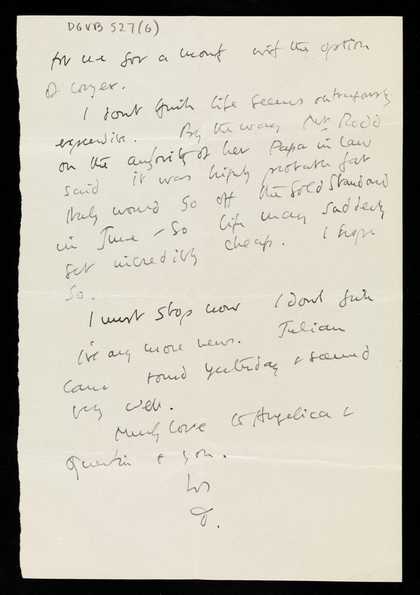 DGVB S27(6)
for me for a month with the option
of longer.
I dont think life seems outrageously
expensive. By the way Mrs Rodd
on the authority of her Papa in law
said it was highly probable that
Italy would go off the Gold Standard
in June – So life may suddenly
get incredibly cheap. I hope
so.
I must stop now I dont think
I've any more news. Julian
came round yesterday & seemed
very well.
Much love to Angelica &
Quentin & you.
D.